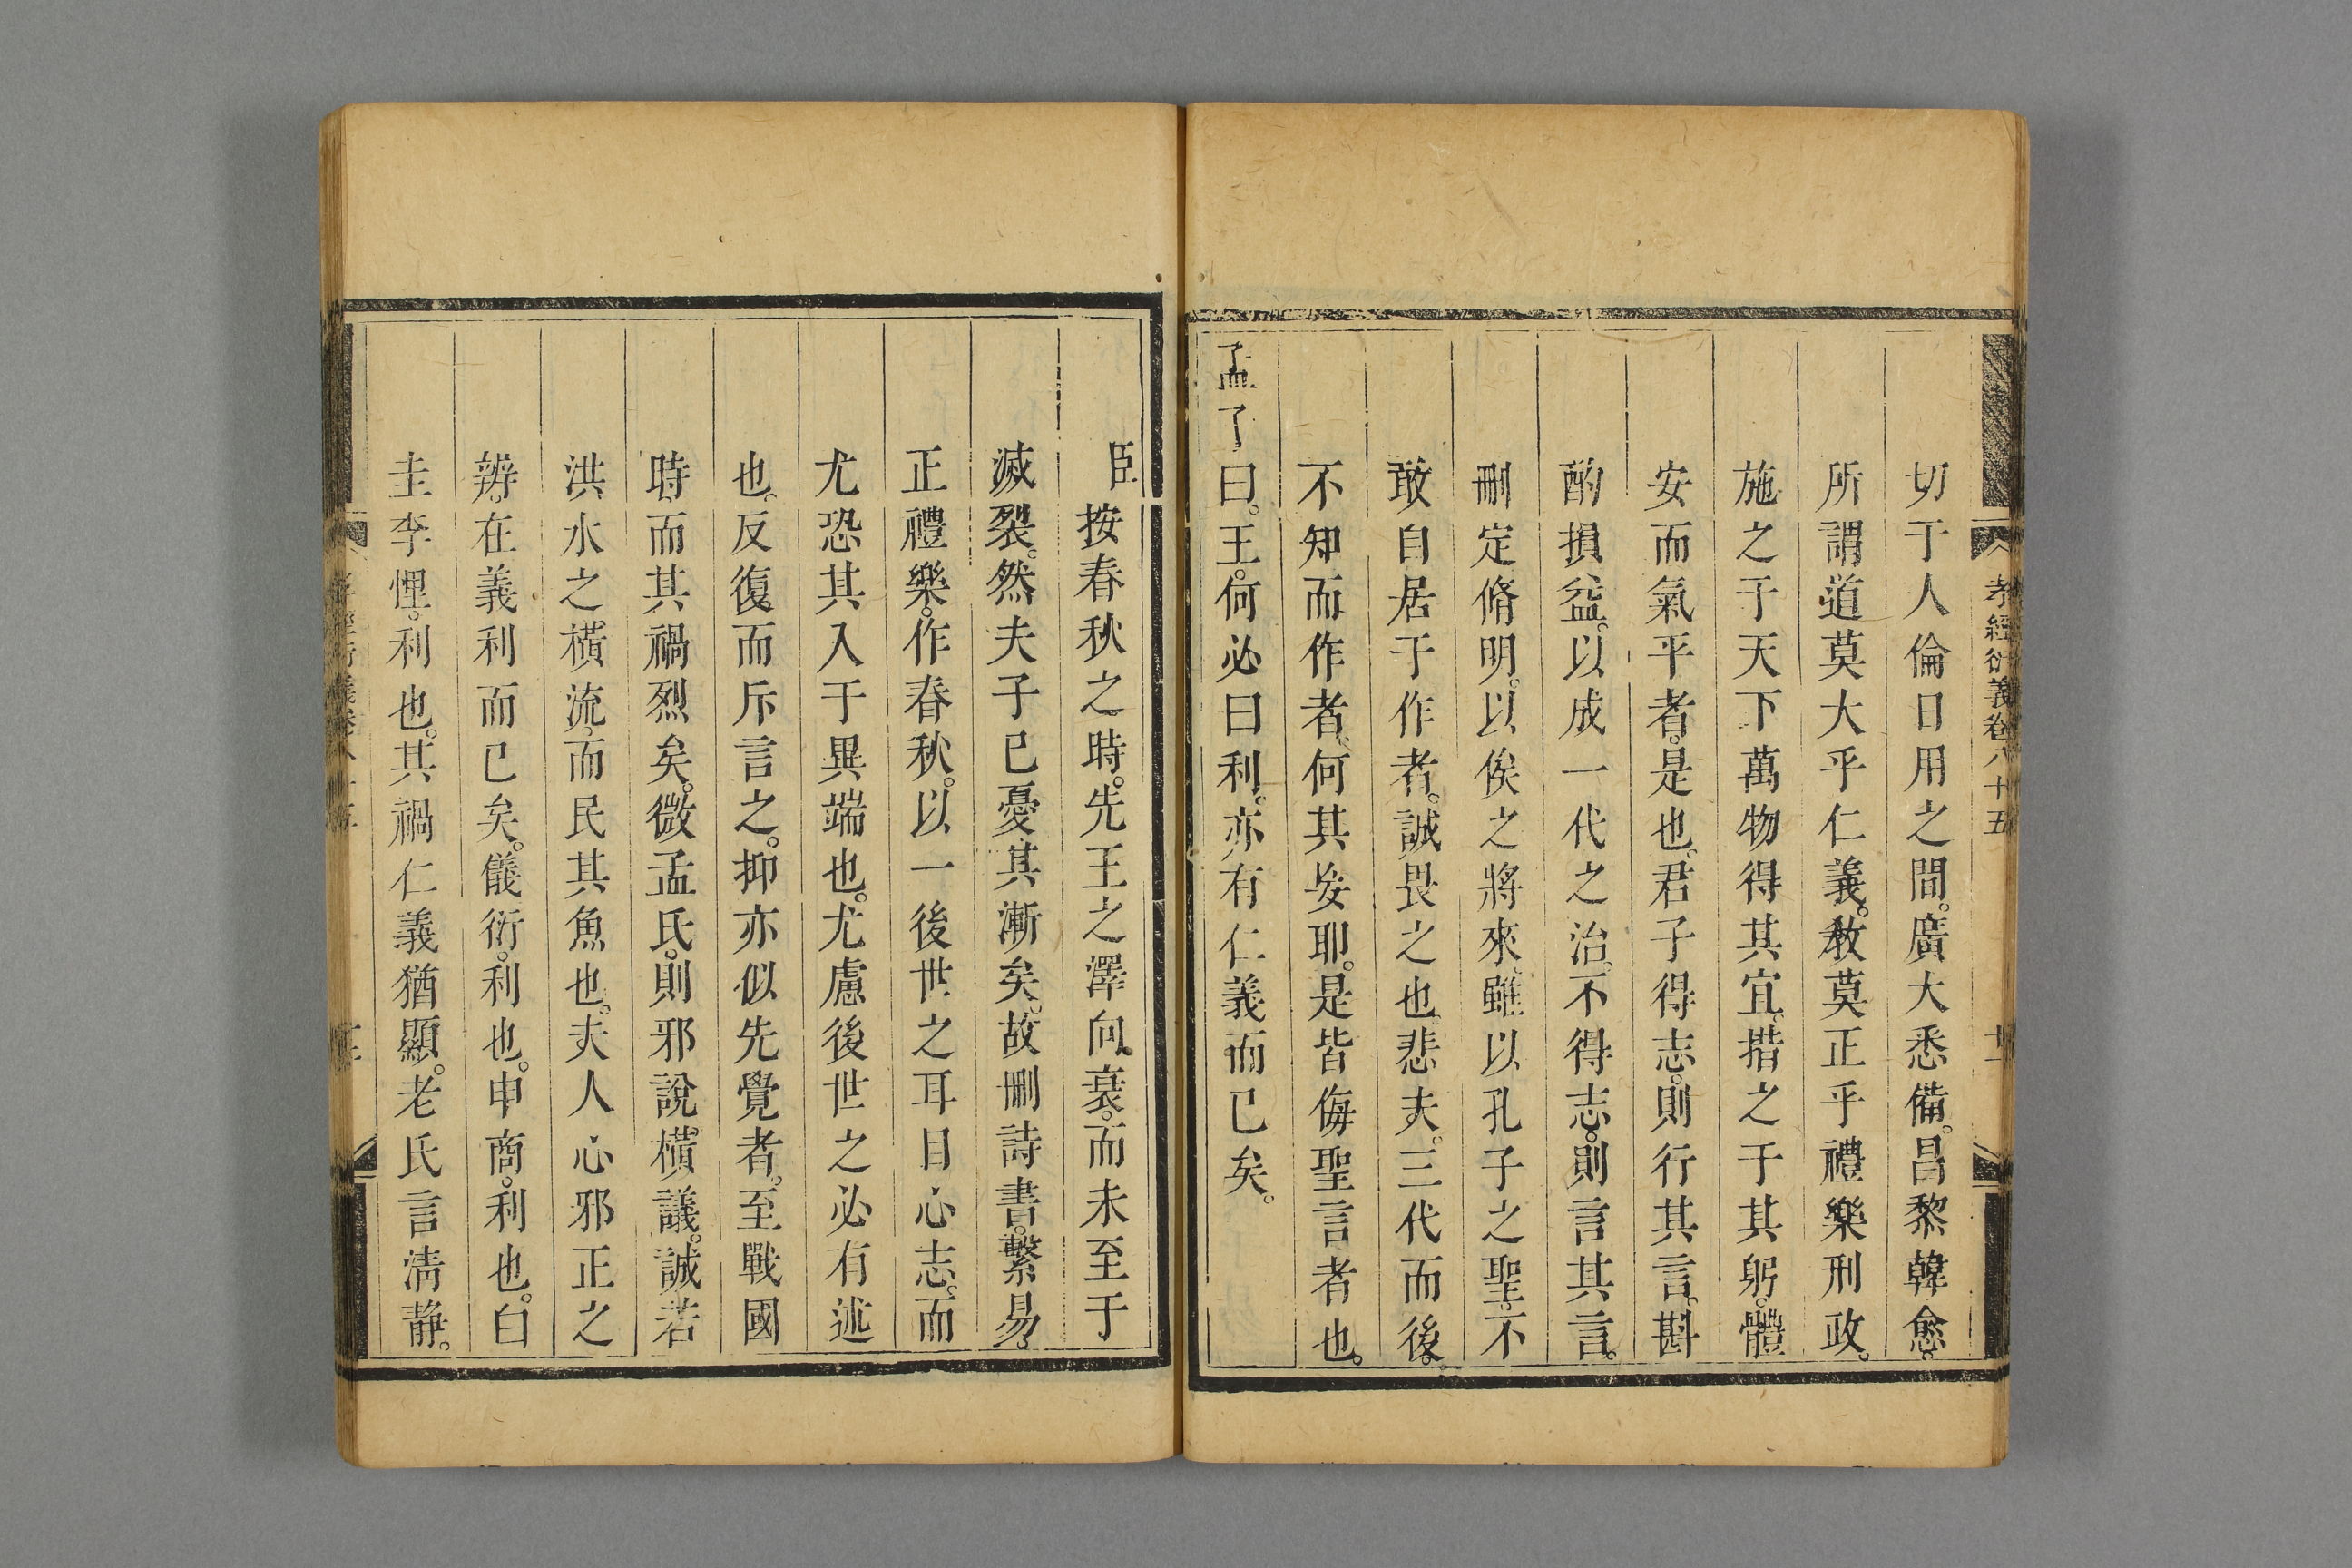 孝經衍義卷八十五
切于人倫日用之間。廣大悉備。昌黎韓愈。
所謂道莫大乎仁義。教莫正乎禮樂刑政。
施之于天下萬物得其宜。措之于其躬。體
安而氣平者。是也。君子得志。則行其言。斟
酌損益。以成一代之治。不得志。則言其言。
刪定脩明。以俟之將來。雖以孔子之聖。不
敢自居于作者。誠畏之也。悲夫。三代而後。
不知而作者。何其妄耶。是皆侮聖言者也。
孟子曰。王。何必曰利。亦有仁義而已矣。
臣按春秋之時。先王之澤向衰。而未至于
滅裂。然夫子已憂其漸矣。故刪詩書。繫易。
正禮樂。作春秋。以一後世之耳目心志。而
尤恐其入于異端也。尤慮後世之必有述
也。反復而斥言之。抑亦似先覺者。至戰國
時。而其禍烈矣。微孟氏。則邪說橫議。誠若
洪水之橫流。而民其魚也。夫人心邪正之
辨。在義利而已矣。儀衍。利也。申商。利也。白
圭李悝。利也。其禍仁義猶顯。老氏言清靜。